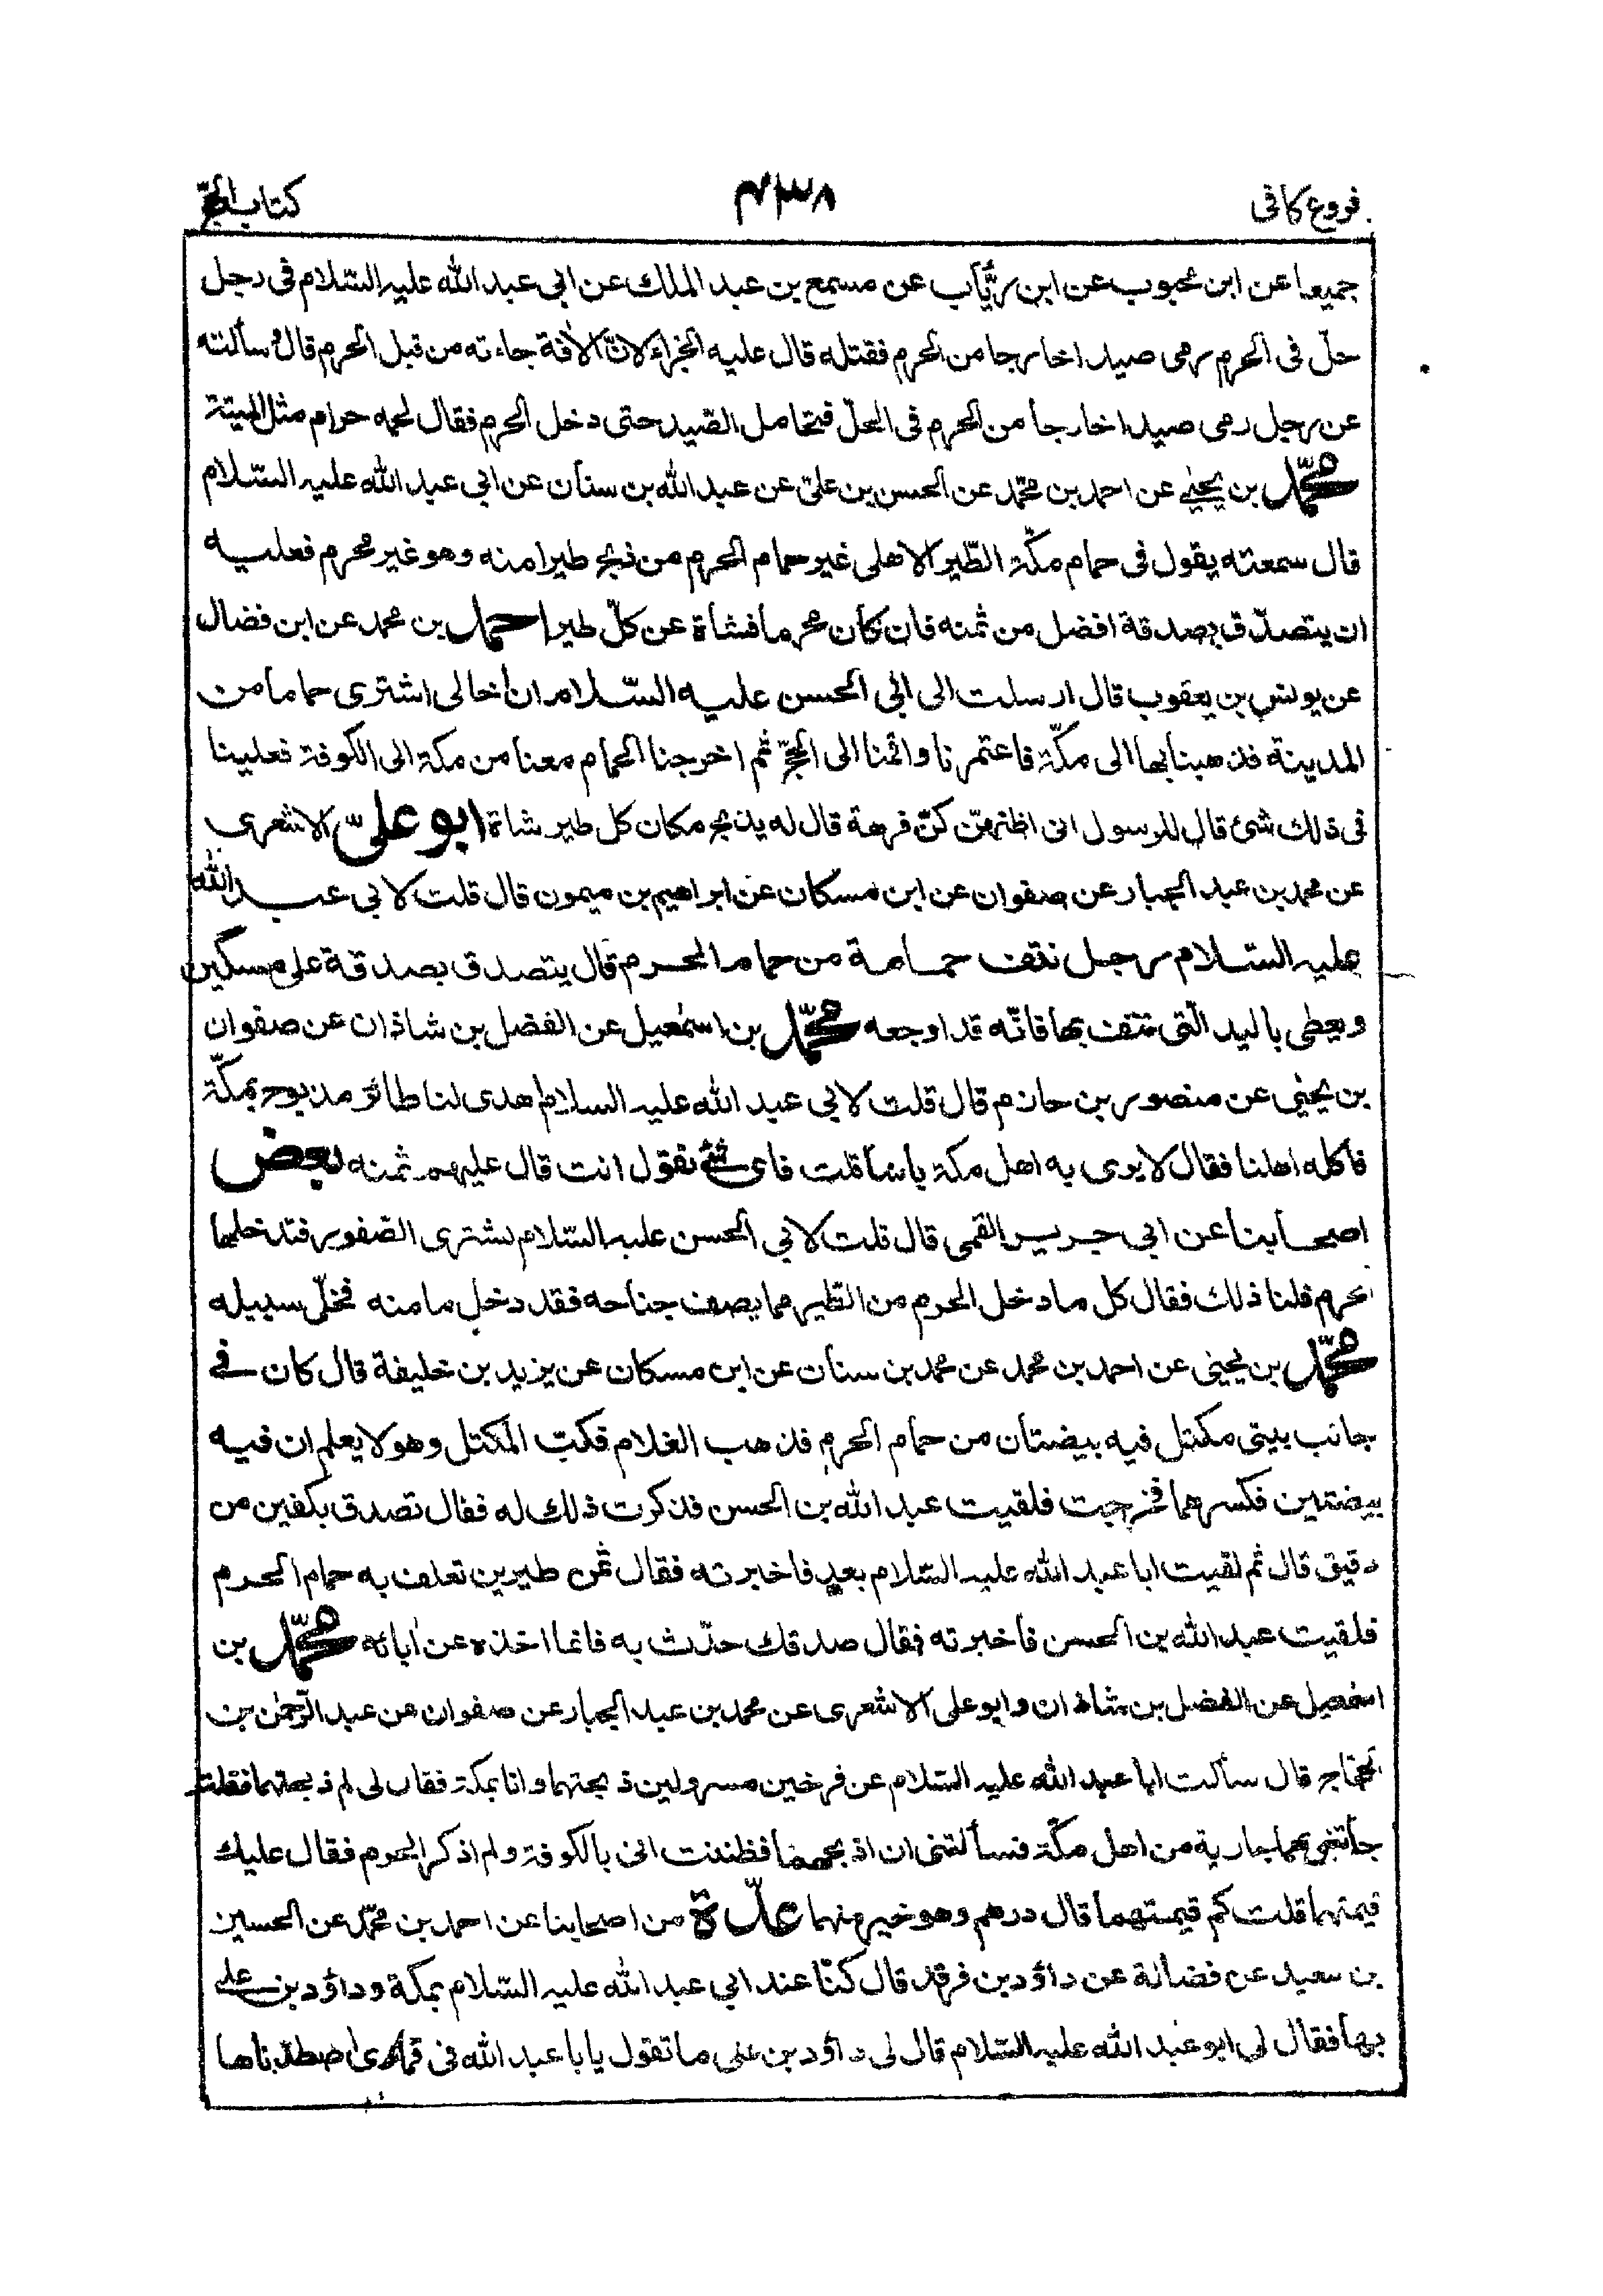 فروع كافى
٤٣٨
كتاب الحجّ
جميعا عن ابن محبوب عن ابن رئاب عن مسمع بن عبد الملك عن ابي عبد الله عليه السّلام فى رجل
حلّ فى الحرم رمى صيدا خارجا من الحرم فقتله قال عليه الجزاء لانّ الافة جاءته من قبل الحرم قال وسألته
عن رجل رمى صيدا خارجا من الحرم فى الحلّ فتحامل الصّيد حتى دخل الحرم فقال لحمه حرام مثل الميتة
محمّد بن يحيى عن احمد بن محمّد عن الحسن بن علىّ عن عبد الله بن سنان عن ابي عبد الله عليه السّلام
قال سمعته يقول فى حمام مكّة الطّير الاهلى غير حمام الحرم من ذبح طيرا منه وهو غير محرم فعليه
ان يتصدّق بصدقة افضل من ثمنه فان كان محرما فشاة عن كلّ طير احمد بن محمد عن ابن فضال
عن يونس بن يعقوب قال ارسلت الى ابي الحسن عليه السّلام ان أخا لى اشترى حماما من
المدينة فذهبنا بها الى مكّة فاعتمرنا واقمنا الى الحجّ ثم اخرجنا الحمام معنا من مكة الى الكوفة فعلينا
فى ذلك شئ قال للرسول انى اظنهنّ كنّ فرهة قال له يذبح مكان كل طير شاة ابو علىّ الاشعرى
عن محمد بن عبد الجبار عن صفوان عن ابن مسكان عن ابراهيم بن ميمون قال قلت لابي عبد الله
عليه السّلام رجل نتف حمامة من حمام الحرم قال يتصدق بصدقة على مسكين
ويعطى باليد الّتى نتف بها فانّه قد اوجعه محمّد بن اسمعيل عن الفضل بن شاذان عن صفوان
بن يحيى عن منصور بن حازم قال قلت لابي عبد الله عليه السلام اهدى لنا طائر مذبوح بمكّة
فأكله اهلنا فقال لا يرى به اهل مكة باسا قلت فاى شئ تقول انت قال عليهم ثمنه بعض
اصحابنا عن ابي جرير القمى قال قلت لابي الحسن عليه السّلام نشترى الصّفور فندخلها
الحرم فلنا ذلك فقال كل ما دخل الحرم من الطّير مما يصف جناحه فقد دخل مامنه فخلّ سبيله
محمّد بن يحيى عن احمد بن محمد عن محمد بن سنان عن ابن مسكان عن يزيد بن خليفة قال كان فى
جانب بيتى مكتل فيه بيضتان من حمام الحرم فذهب الغلام فكبّ المكتل وهو لا يعلم ان فيه
بيضتين فكسرهما فخرجت فلقيت عبد الله بن الحسن فذكرت ذلك له فقال تصدق بكفين من
دقيق قال ثم لقيت ابا عبد الله عليه السّلام بعد فاخبرته فقال ثمن طيرين تعلف به حمام الحرم
فلقيت عبد الله بن الحسن فأخبرته فقال صدقك حدّث به فانما اخذه عن ابائه محمّد بن
اسمعيل عن الفضل بن شاذان وابو على الاشعرى عن محمد بن عبد الجبار عن صفوان عن عبد الرّحمن بن
الحجّاج قال سألت ابا عبد الله عليه السّلام عن فرخين مسرولين ذبحتهما وانا بمكة فقال لى لم ذبحتهما فقلت
جاءتنى بهما جارية من اهل مكّة فسألتنى ان اذبحهما فظننت انى بالكوفة ولم اذكر الحرم فقال عليك
قيمتهما قلت كم قيمتهما قال درهم وهو خير منهما عدّة من اصحابنا عن احمد بن محمّد عن الحسين
بن سعيد عن فضالة عن داؤد بن فرقد قال كنّا عند ابي عبد الله عليه السّلام بمكة وداؤد بن على
بها فقال لى ابو عبد الله عليه السّلام قال لى داؤد بن على ما تقول يا با عبد الله فى قمارى اصطدناها